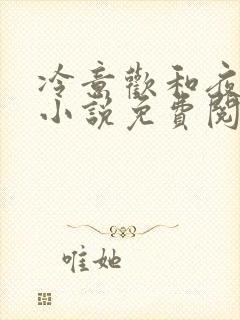 冷意歡和夜
小說免費閱
唯她